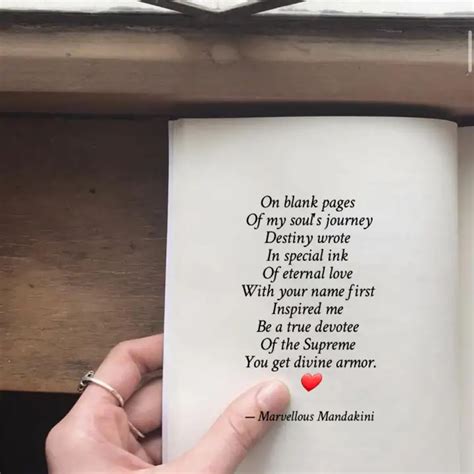 On blank pages
Of my soul's journey
Destiny wrote
In special ink
Of eternal love
With your name first
Inspired me
Be a true devotee
Of the Supreme
You get divine armor.
— Marvellous Mandakini